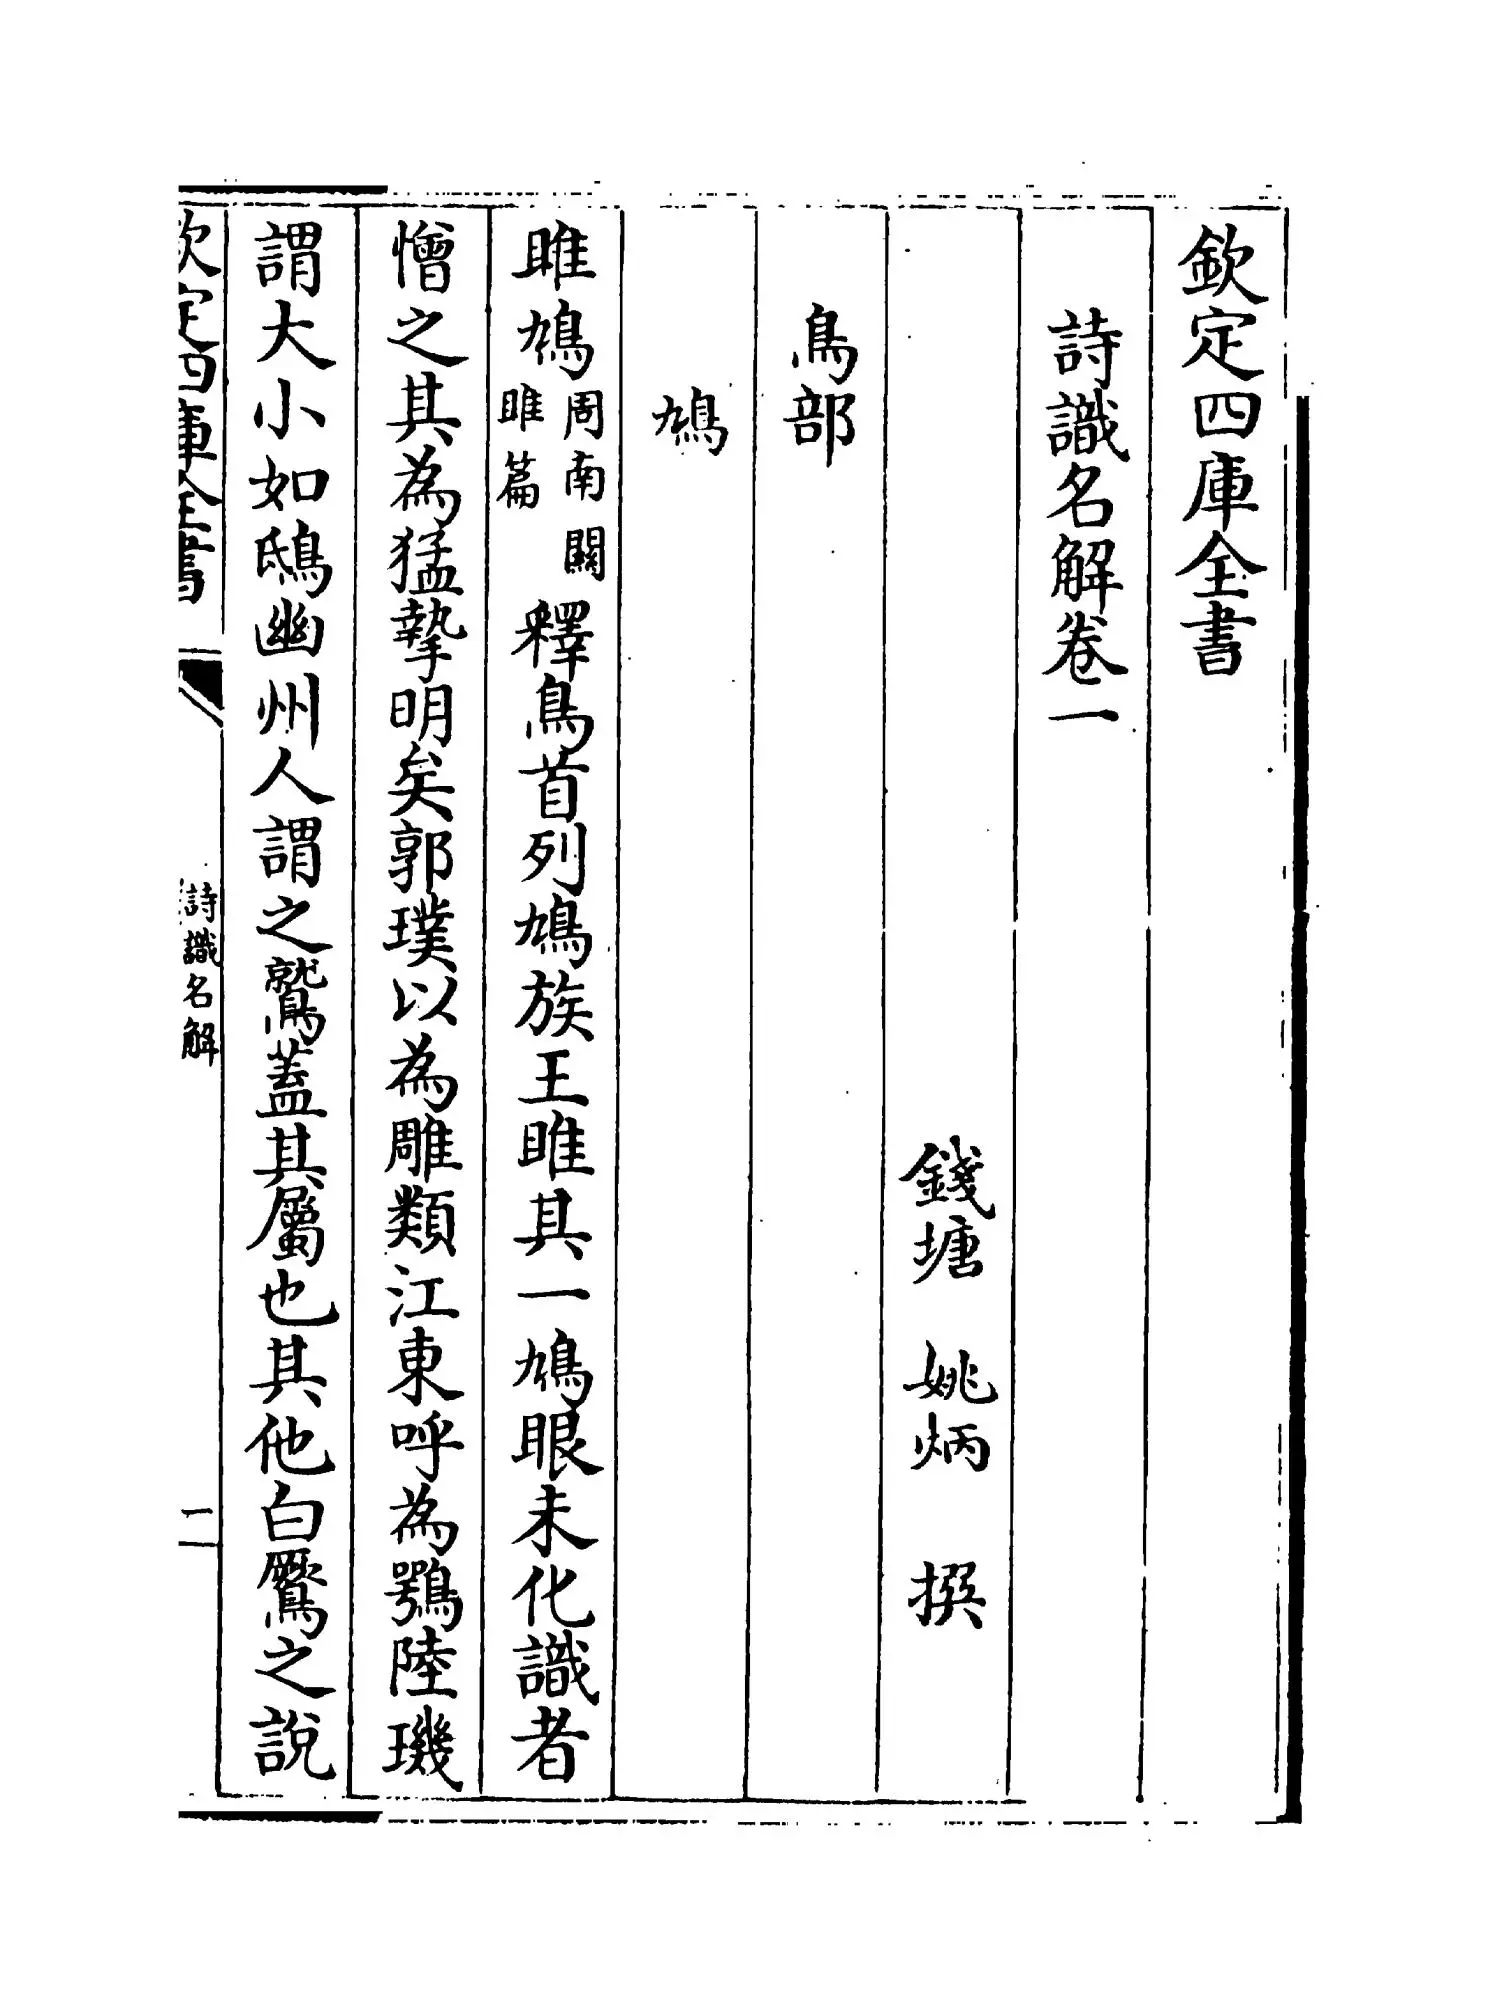 欽定四庫全書
詩識名解卷一
錢塘 姚炳 撰
鳥部
鳩
雎鳩周南關雎篇 釋鳥首列鳩族王雎其一鳩眼未化識者
憎之其為猛摯明矣郭璞以為雕類江東呼為鶚陸璣
謂大小如鴟幽州人謂之鷲蓋其屬也其他白鷢之說
欽定四庫全書
詩識名解
二